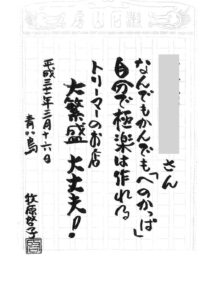 さん
なんでもかんでも「へのかっぱ」
自分で極楽は作れる
トリーマーのお店
大繁盛 大丈夫!
平成三十一年三月十六日
青い鳥
牧原好子